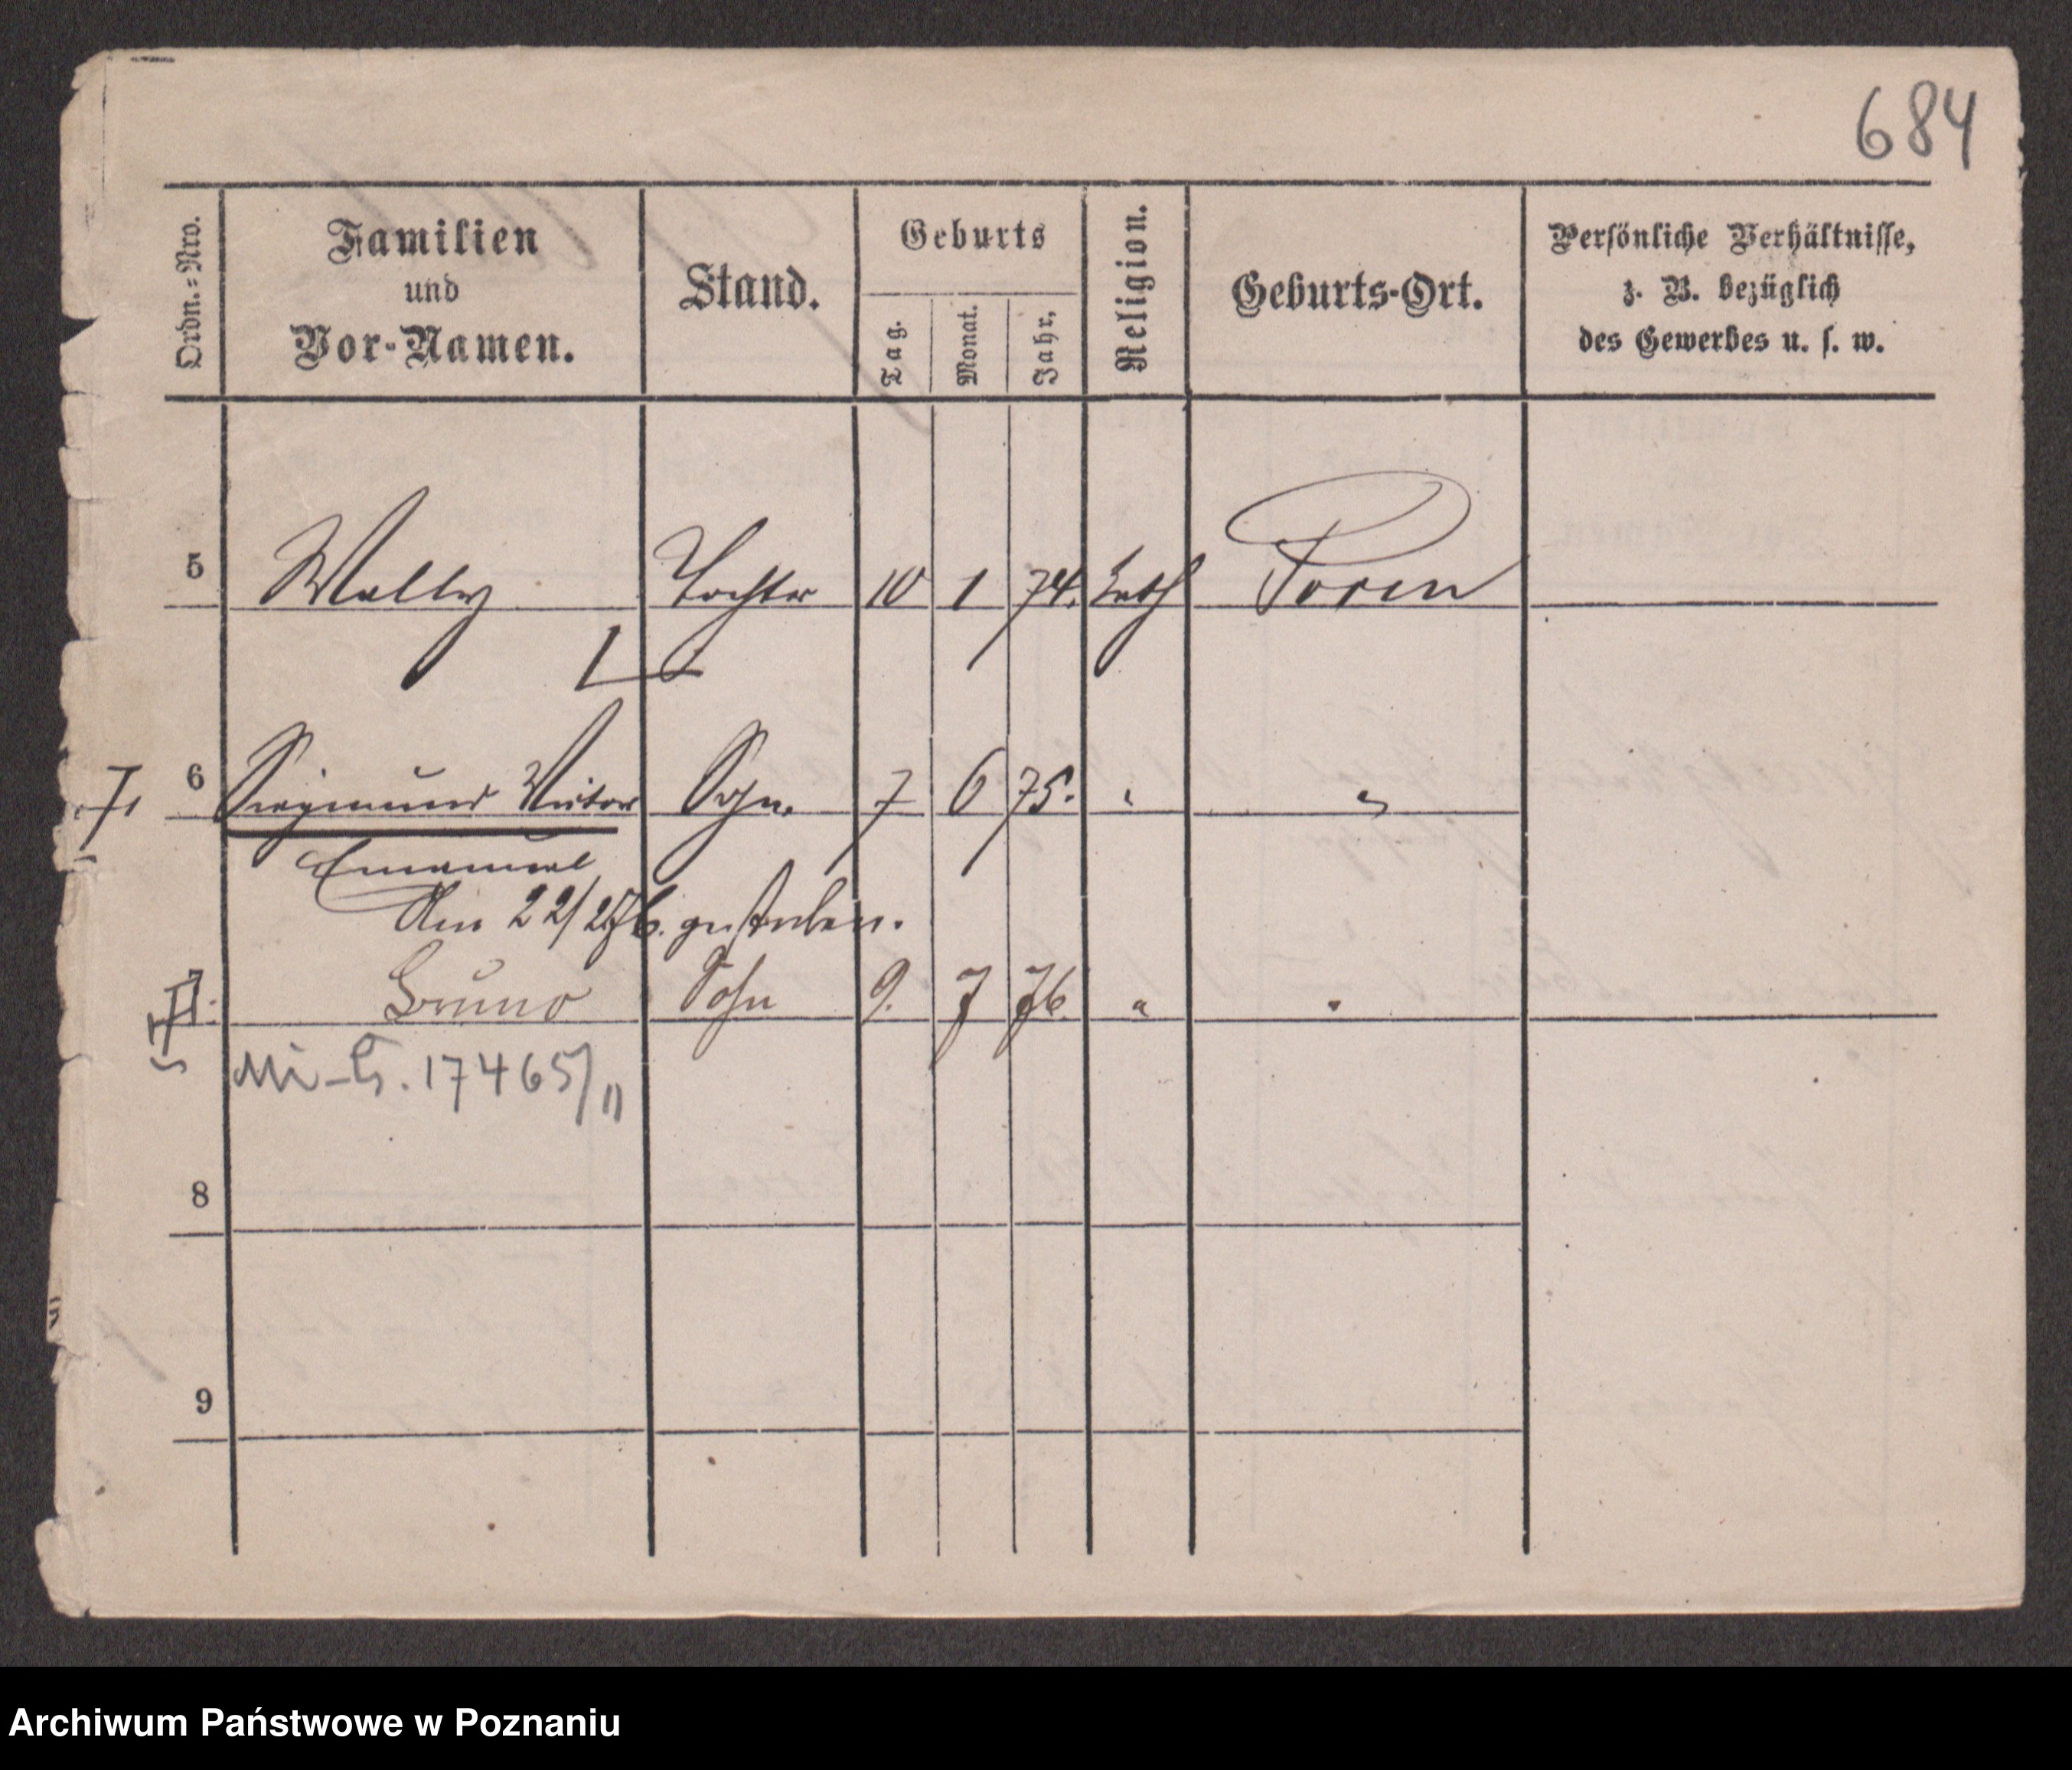 684
Ordn.=Nro.
Familien
und
Vor-Namen.
Stand.
Geburts
Tag.
Monat.
Jahr.
Religion.
Geburts-Ort.
Persönliche Verhältnisse,
z. B. bezüglich
des Gewerbes u. s. w.
5 Wally Tochter 10 1 74. kath Posen
6 Siegmund Victor Sohn 7 6 75. " "
Emanuel
Am 22/2 76. gestorben.
7 Bruno Sohn 9. 7 76. " "
17465/11
8
9
Archiwum Państwowe w Poznaniu